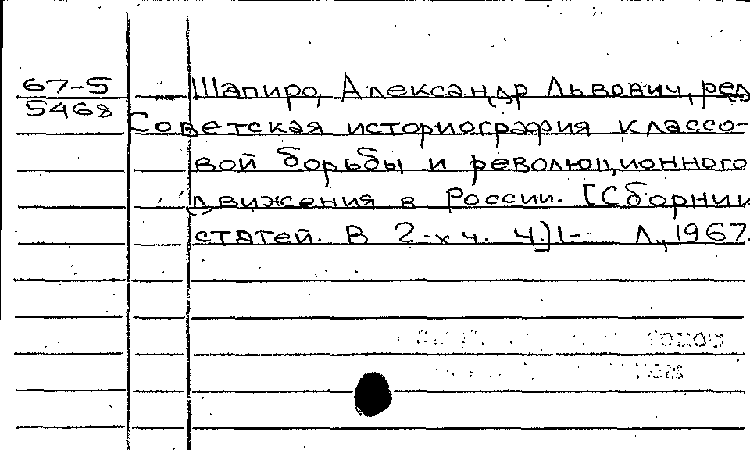 67-5 Шапиро, Александр Львович, ред
5468 Советская историография классо-
вой борьбы и революционного
движения в России. [Сборник
статей. В 2-х ч. Ч.]1- Л., 1967